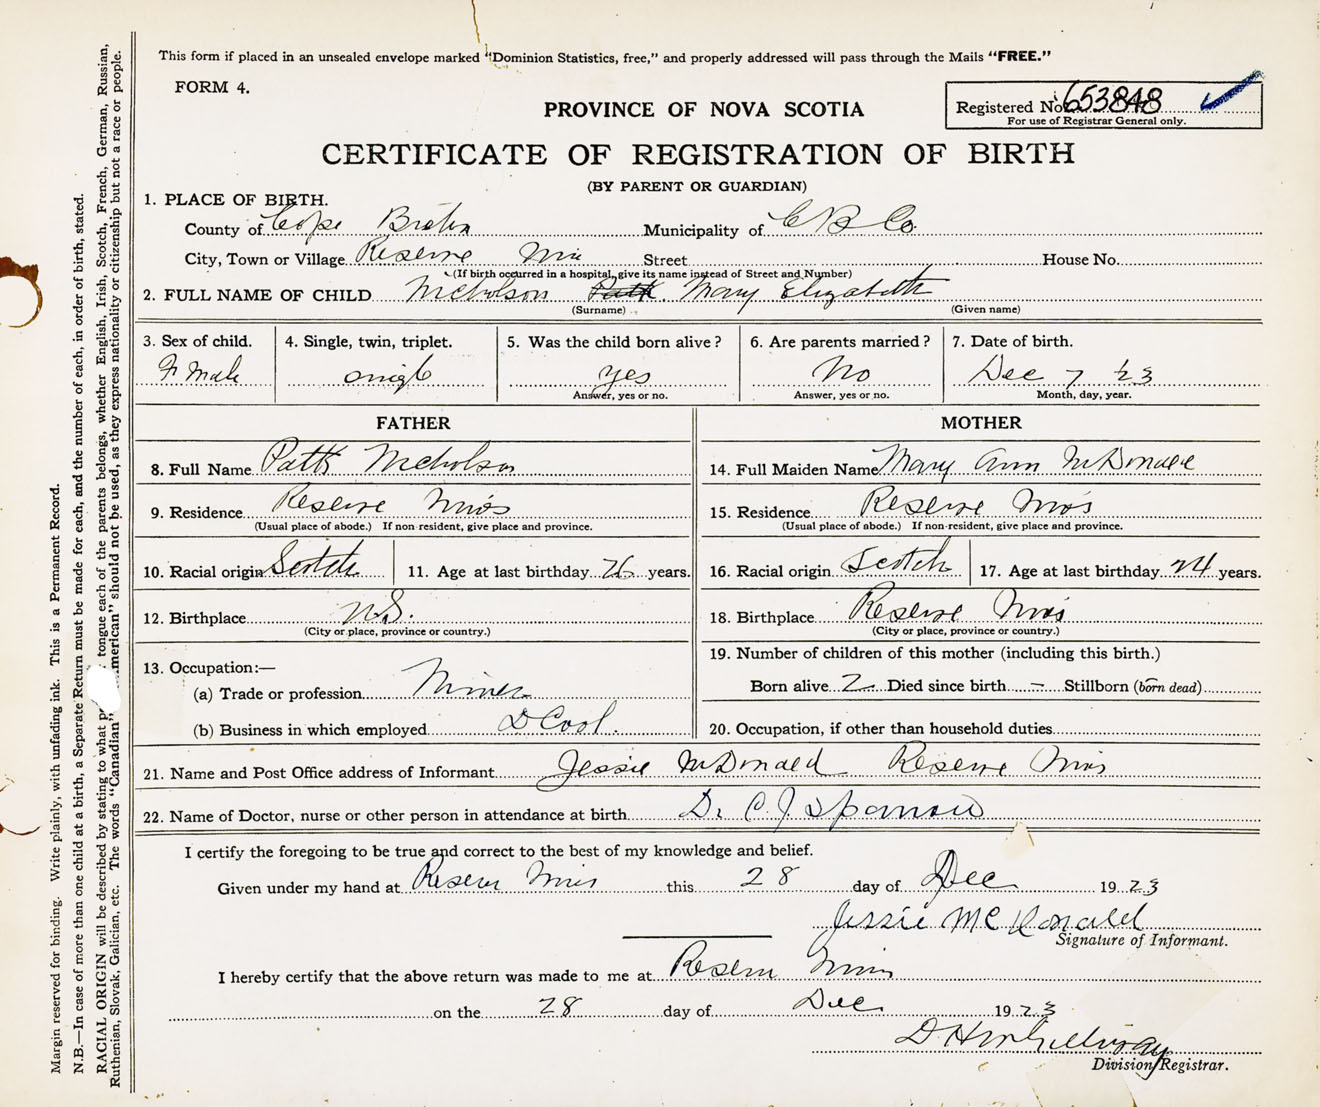 This form if placed in an unsealed envelope marked "Dominion Statistics, free," and properly addressed will pass through the Mails "FREE."
FORM 4.
Registered No. 653848
For use of Registrar General only.
PROVINCE OF NOVA SCOTIA
CERTIFICATE OF REGISTRATION OF BIRTH
(BY PARENT OR GUARDIAN)
1. PLACE OF BIRTH.
County of Cape Breton Municipality of C B Co.
City, Town or Village Reserve Mines Street House No.
(If birth occurred in a hospital, give its name instead of Street and Number)
2. FULL NAME OF CHILD Nicholson Patk. Mary Elizabeth
(Surname) (Given name)
3. Sex of child. 4. Single, twin, triplet. 5. Was the child born alive? 6. Are parents married? 7. Date of birth.
Female single yes No Dec 7 23
Answer, yes or no. Answer, yes or no. Month, day, year.
FATHER MOTHER
8. Full Name Patk Nicholson 14. Full Maiden Name Mary Ann McDonald
9. Residence Reserve Mines 15. Residence Reserve Mines
(Usual place of abode.) If non-resident, give place and province. (Usual place of abode.) If non-resident, give place and province.
10. Racial origin Scotch 11. Age at last birthday 26 years. 16. Racial origin Scotch 17. Age at last birthday 24 years.
12. Birthplace N.S. 18. Birthplace Reserve Mines
(City or place, province or country.) (City or place, province or country.)
13. Occupation:— 19. Number of children of this mother (including this birth.)
(a) Trade or profession Miner Born alive 2 Died since birth – Stillborn (born dead)
(b) Business in which employed D Coal. 20. Occupation, if other than household duties
21. Name and Post Office address of Informant Jessie McDonald Reserve Mines
22. Name of Doctor, nurse or other person in attendance at birth Dr C. J. Sparrow
I certify the foregoing to be true and correct to the best of my knowledge and belief.
Given under my hand at Reserve Mines this 28 day of Dec 1923
Jessie McDonald
Signature of Informant.
I hereby certify that the above return was made to me at Reserve Mines
on the 28 day of Dec 1923
D H McGillivray
Division Registrar.
Margin reserved for binding. Write plainly, with unfading ink. This is a Permanent Record.
N.B.—In case of more than one child at a birth, a Separate Return must be made for each, and the number of each, in order of birth, stated.
RACIAL ORIGIN will be described by stating to what tongue each of the parents belongs, whether English, Irish, Scotch, French, German, Russian,
Ruthenian, Slovak, Galician, etc. The words "Canadian" merican" should not be used, as they express nationality or citizenship but not a race or people.